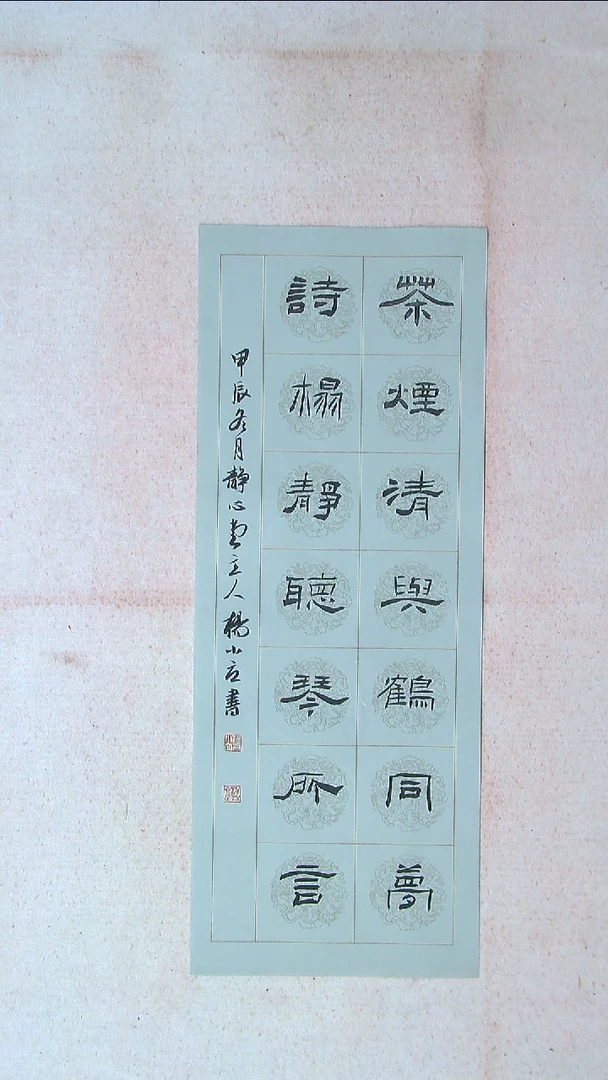 茶煙清與鶴同夢
詩榻靜聽琴所言
甲辰冬月靜心堂主人楊小立書